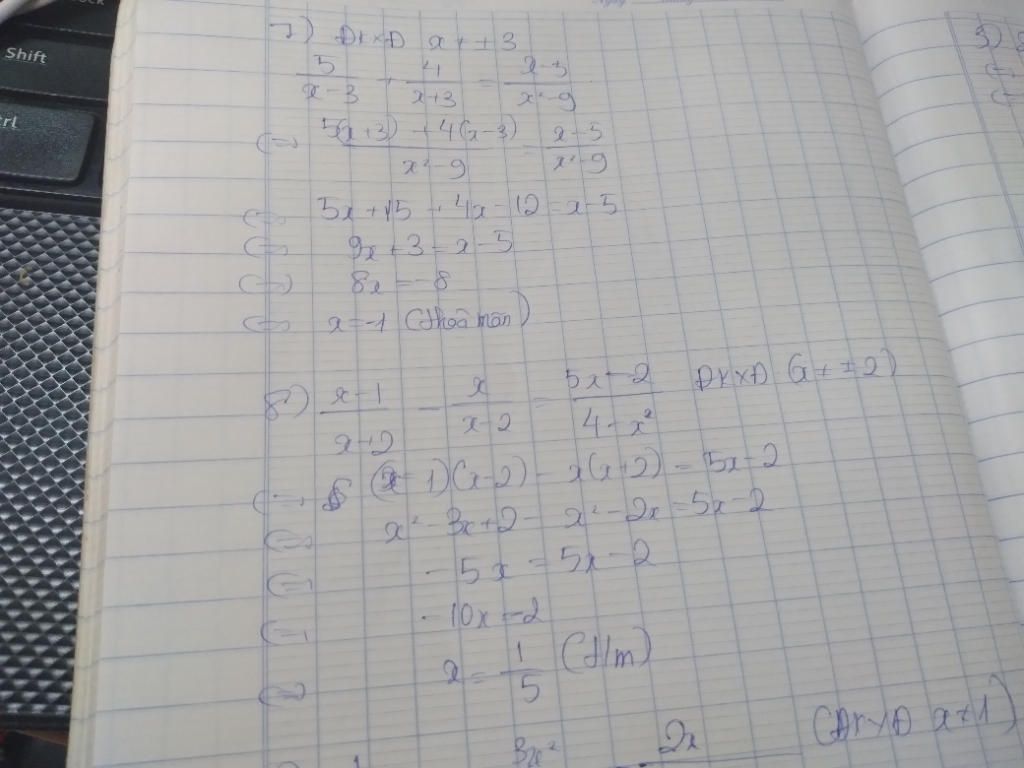 Shift
7) ĐKXĐ x ≠ ±3
5/(x-3) + 4/(x+3) = (x-5)/(x²-9)
(=) (5(x+3) + 4(x-3))/(x²-9) = (x-5)/(x²-9)
(=) 5x+15 + 4x-12 = x-5
(=) 9x+3 = x-5
(=) 8x = -8
(=) x = -1 (thoả mãn)
8) (x-1)/(x+2) - x/(x-2) = (5x-2)/(4-x²) ĐKXĐ (x ≠ ±2)
(=) (x-1)(x-2) - x(x+2) = 5x-2
(=) x²-3x+2 - x²-2x = 5x-2
(=) -5x = 5x-2
(=) -10x = -2
(=) x = 1/5 (t/m)
3x² 2x (ĐKXĐ x ≠ 1)
3)